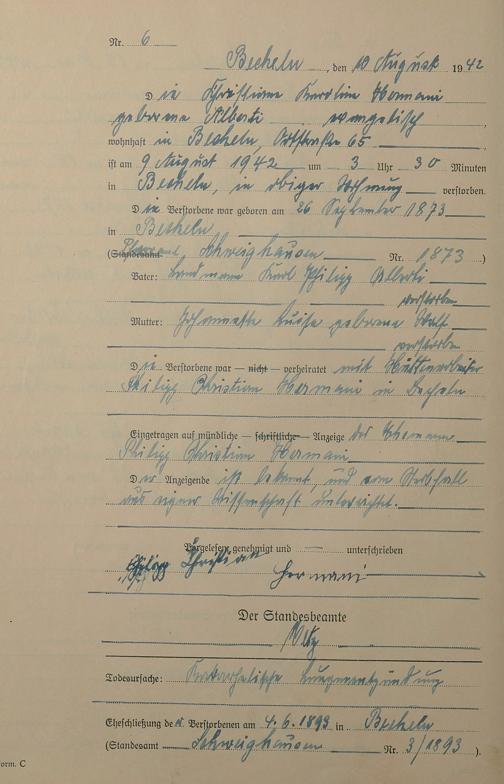 Nr. 6
Becheln, den 10 August 1942
Die Christiane Karoline Hermani
geborene Alberti evangelisch
wohnhaft in Becheln, Ortstraße 65
ist am 9 August 1942 um 3 Uhr 30 Minuten
in Becheln, in obiger Wohnung verstorben.
Die Verstorbene war geboren am 26 September 1873
in Becheln
(Standesamt Pfarramt Schweighausen Nr. 1873)
Vater: Landmann Karl Philipp Alberti
verstorben
Mutter: Luise geborene
verstorben
Die Verstorbene war — nicht — verheiratet mit Hüttenarbeiter
Philipp Christian Hermani in Becheln
Eingetragen auf mündliche — schriftliche — Anzeige des Ehemanns
Philipp Christian Hermani
Der Anzeigende ist bekannt, und vom Sterbfall
aus eigner Wissenschaft unterrichtet.
Vorgelesen, genehmigt und unterschrieben
Philipp Christian
Hermani
Der Standesbeamte
Todesursache: Katarrhalische Lungenentzündung
Eheschließung der Verstorbenen am 4.6.1893 in Becheln
(Standesamt Schweighausen Nr. 3/1893).
orm. C